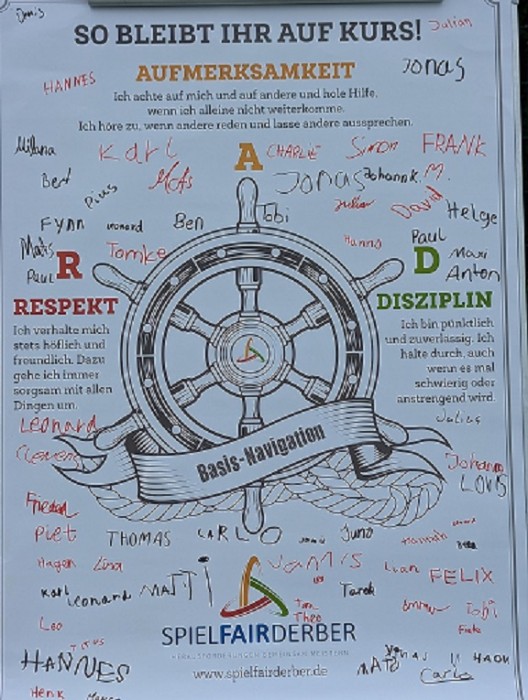 Julian
SO BLEIBT IHR AUF KURS!
HANNES
AUFMERKSAMKEIT
JONAS
Ich achte auf mich und auf andere und hole Hilfe,
wenn ich alleine nicht weiterkomme.
Ich höre zu, wenn andere reden und lasse andere aussprechen.
Karl
A
CHARLIE
Simon
FRANK
Bert
Pius
Mats
JONAS
Johann K.
M.
David
Helge
Fynn
Leonard
Ben
Tobi
Hanno
Paul
Mats
R
Tomke
D
Maxi
Paul
Anton
RESPEKT
DISZIPLIN
Ich verhalte mich
stets höflich und
freundlich. Dazu
gehe ich immer
sorgsam mit allen
Dingen um.
Ich bin pünktlich
und zuverlässig. Ich
halte durch, auch
wenn es mal
schwierig oder
anstrengend wird.
Leonard
Julius
Clemens
Basis-Navigation
Johann
LOUIS
Piet
THOMAS
CARLO
Juno
Hannah
Hagen
Lina
JANNIS
FELIX
Karl
Leonard
MATTI
Tarek
Tom
Theo
Tobi
Leo
SPIELFAIRDERBER
Titus
HANNES
www.spielfairderber.de
MATS
JONAS
Carlo
Henk